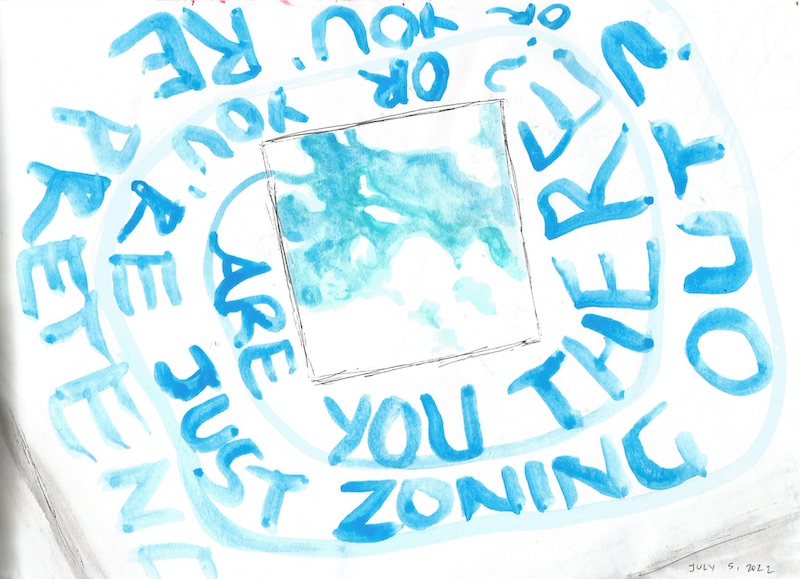 ARE YOU THERE?
OR YOU'RE JUST ZONING OUT?
OR YOU'RE PRETEN
JULY 5, 2022